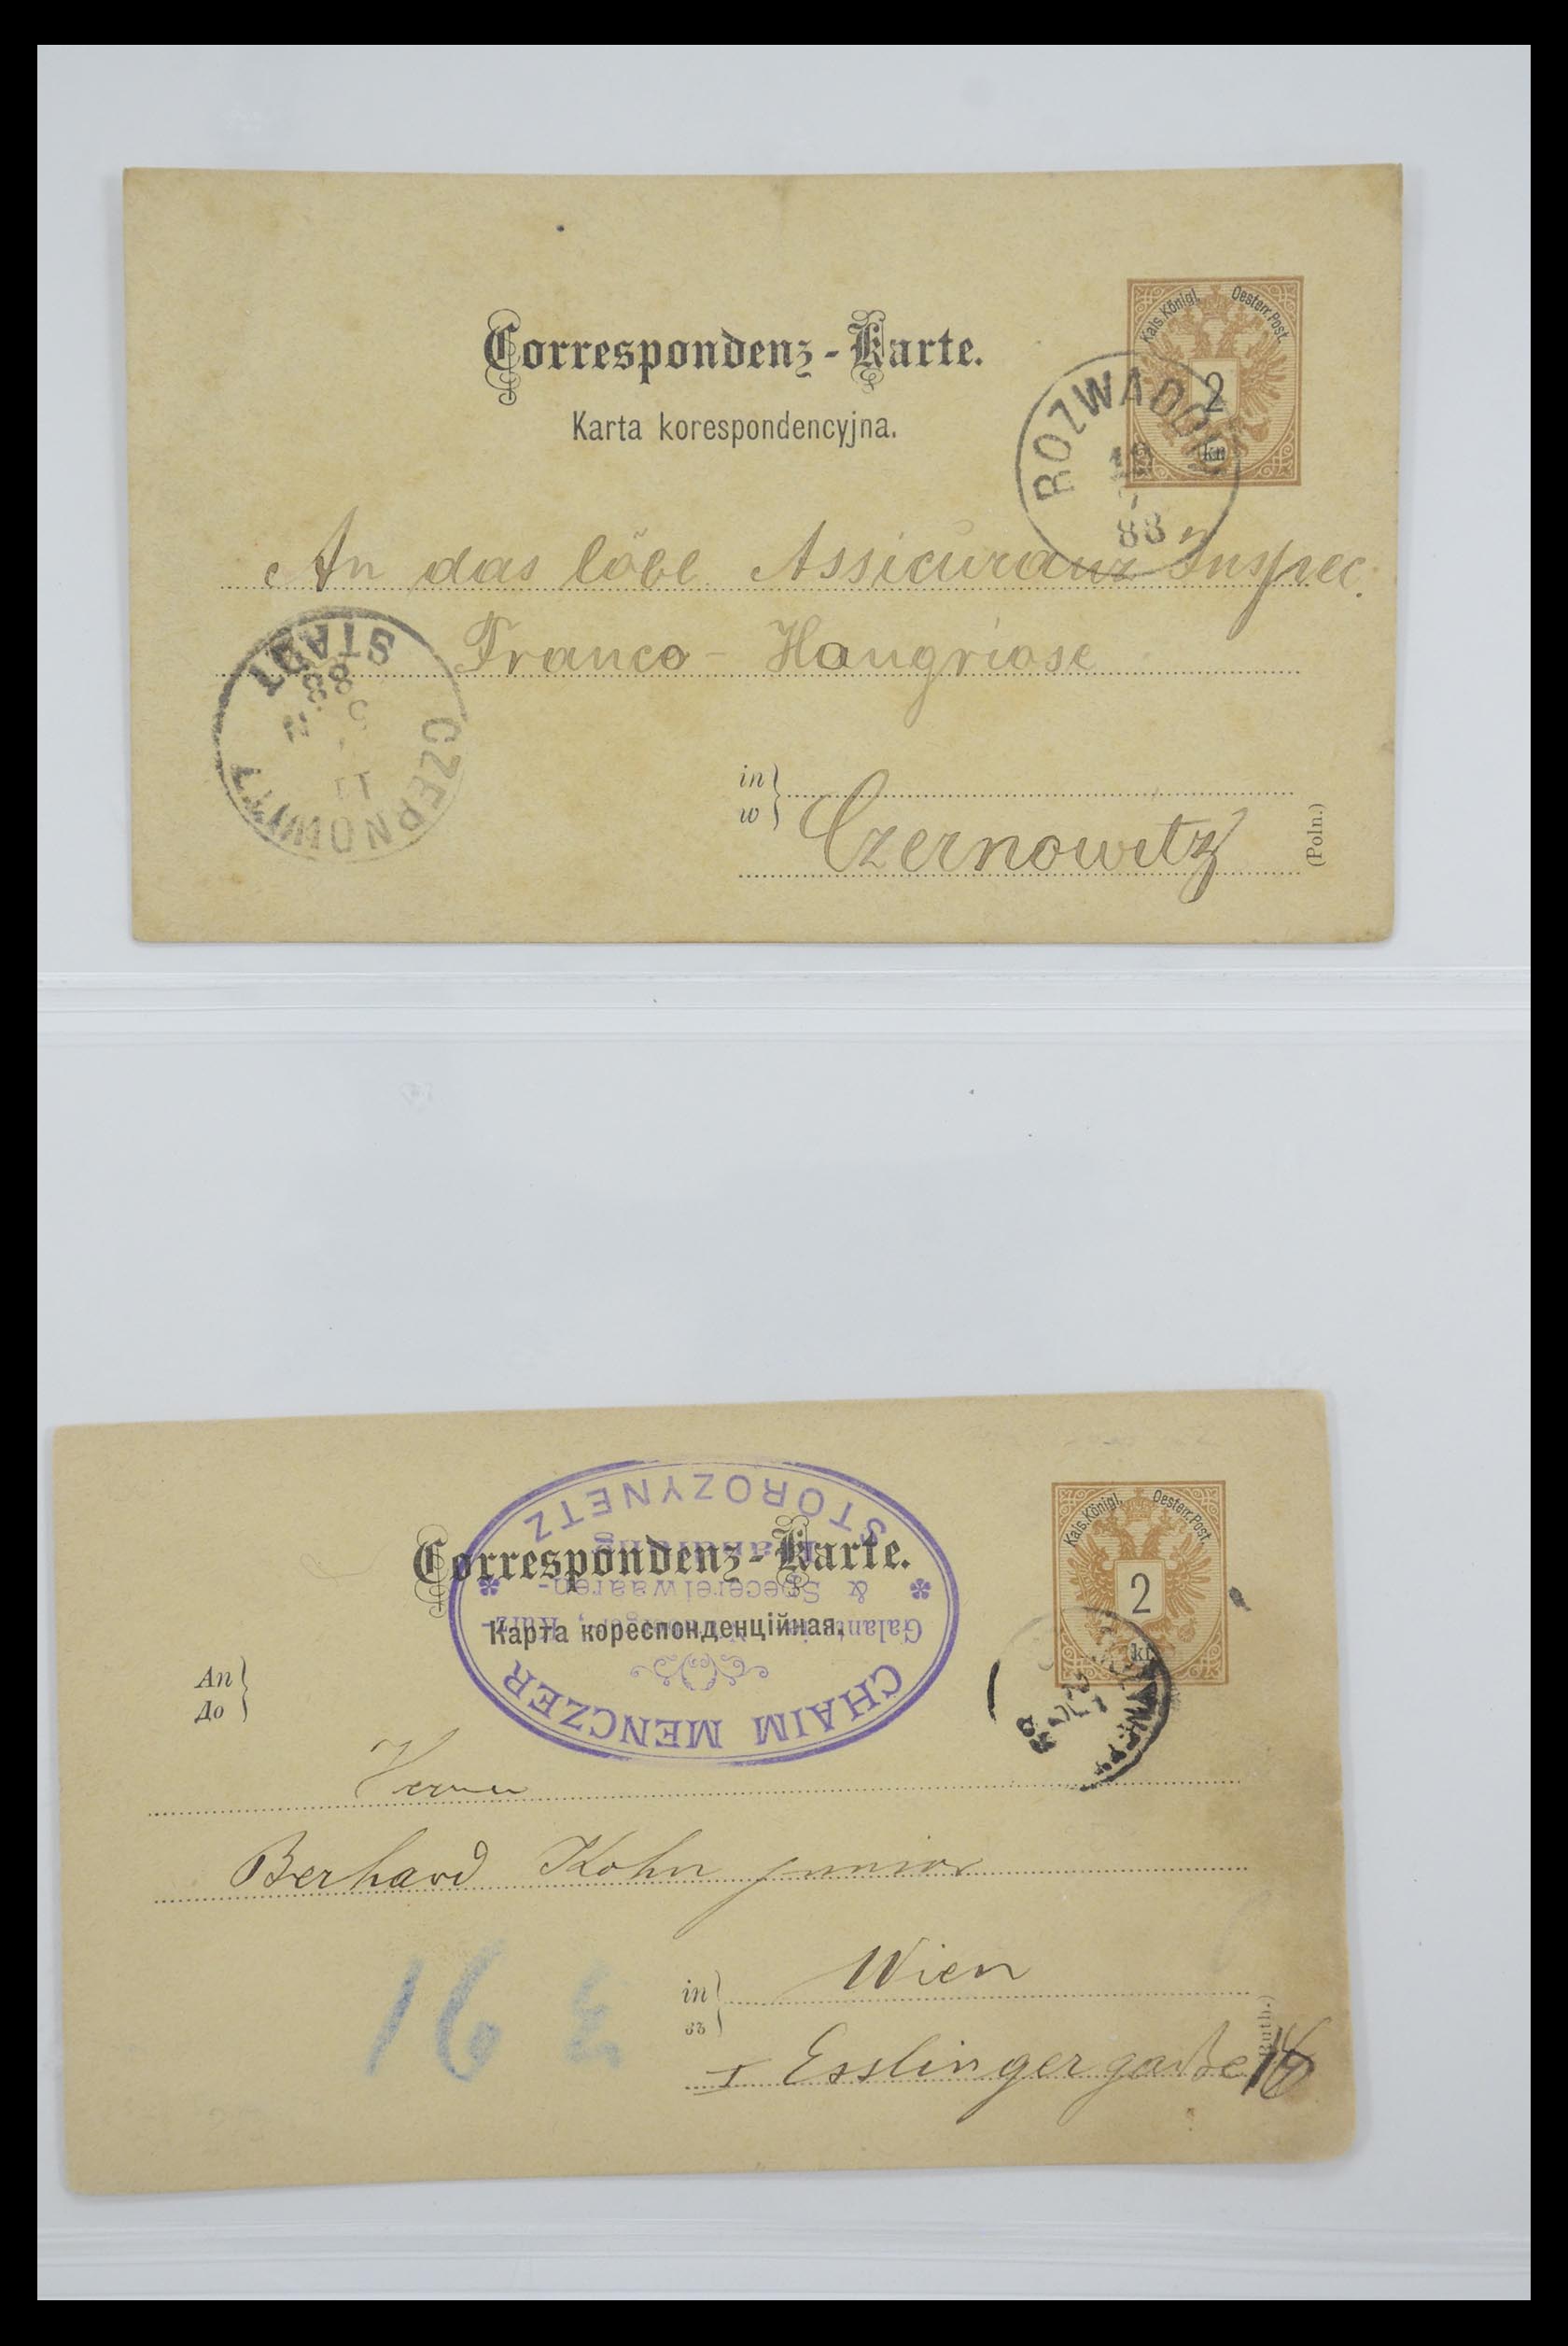 Correspondenz-Karte.
Karta korespondencyjna.
Kais. Königl. Oesterr. Post.
2
kr.
ROZWADOW
88
An das löbl. Assicuranz Inspec.
Franco - Hongriose
CZERNOWITZ
STADT
88
11
in
w
Czernowitz
(Poln.)
Correspondenz-Karte.
Карта кореспонденційная.
Kais. Königl. Oesterr. Post.
2
kr.
CHAIM MENCZER
& Specereiwaaren-
STOROZYNETZ
An
До
Herrn
Berhard Kohn junior
16
in
въ
Wien
I Esslingergaße 16
(Ruth.)